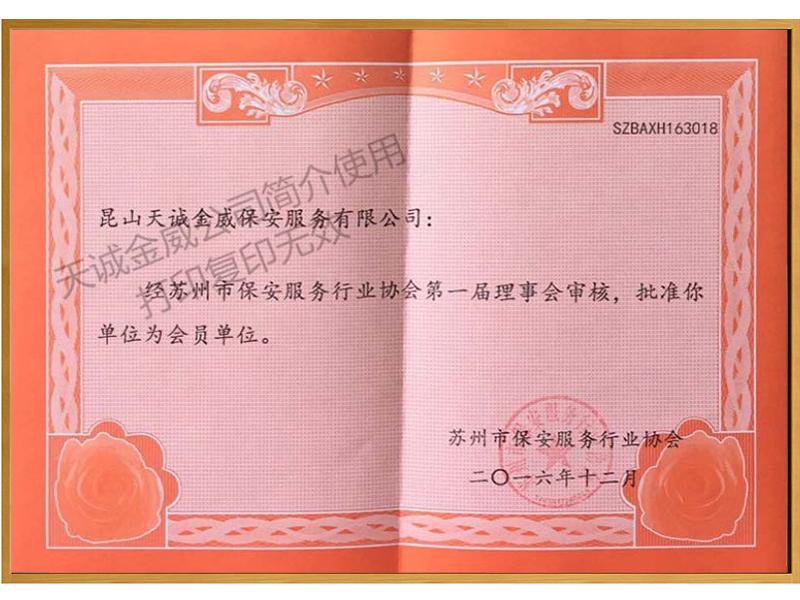 SZBAXH163018
昆山天诚金威保安服务有限公司：
天诚金威公司简介使用
打印复印无效
经苏州市保安服务行业协会第一届理事会审核，批准你
单位为会员单位。
苏州市保安服务行业协会
二〇一六年十二月